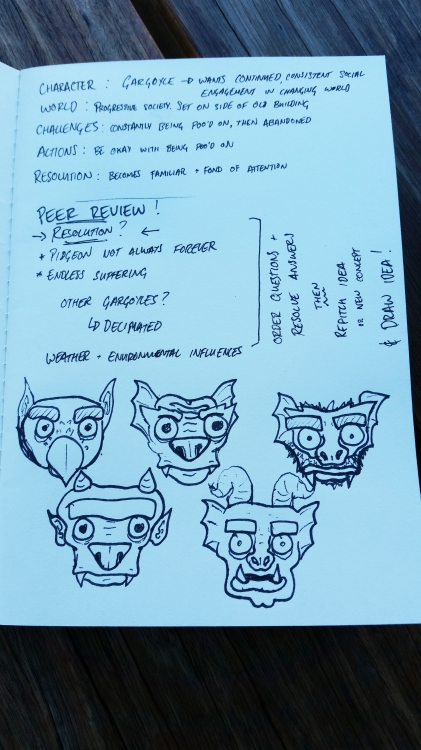 CHARACTER : GARGOYLE → WANTS CONTINUED, CONSISTENT SOCIAL
ENGAGEMENT IN CHANGING WORLD
WORLD : PROGRESSIVE SOCIETY. SET ON SIDE OF OLD BUILDING
CHALLENGES : CONSTANTLY BEING POO'D ON, THEN ABANDONED
ACTIONS : BE OKAY WITH BEING POO'D ON
RESOLUTION : BECOMES FAMILIAR + FOND OF ATTENTION
PEER REVIEW !
→ RESOLUTION ? ←
* PIDGEON NOT ALWAYS FOREVER
* ENDLESS SUFFERING
OTHER GARGOYLES ?
↳ DECIMATED
WEATHER + ENVIRONMENTAL INFLUENCES
ORDER QUESTIONS +
RESOLVE ANSWERS
THEN
REPITCH IDEA
OR NEW CONCEPT
& DRAW IDEA !